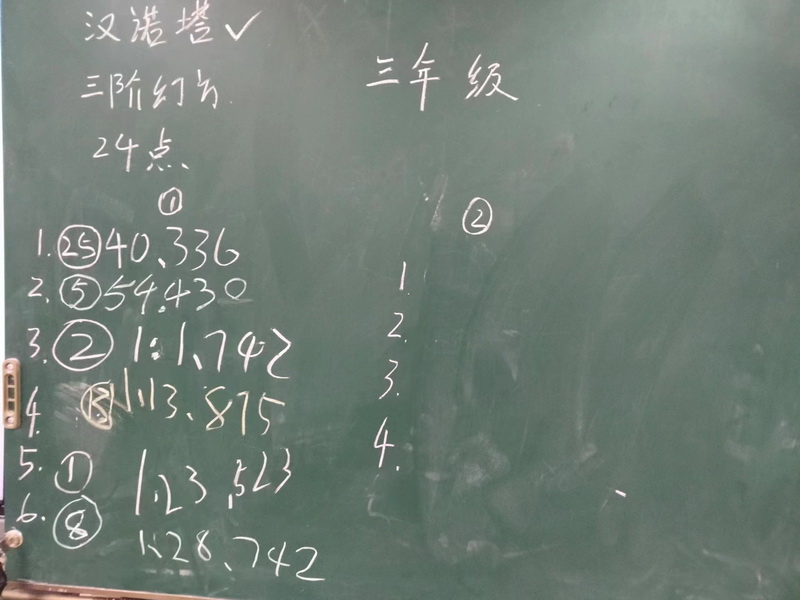 汉诺塔✓
三阶幻方
24点
三年级
①
1. ㉕ 40.336
2. ⑤ 54.430
3. ② 1:1.742
4. ⑬ 1.13.875
5. ① 1.23.523
6. ⑧ 1:28.742
②
1.
2.
3.
4.